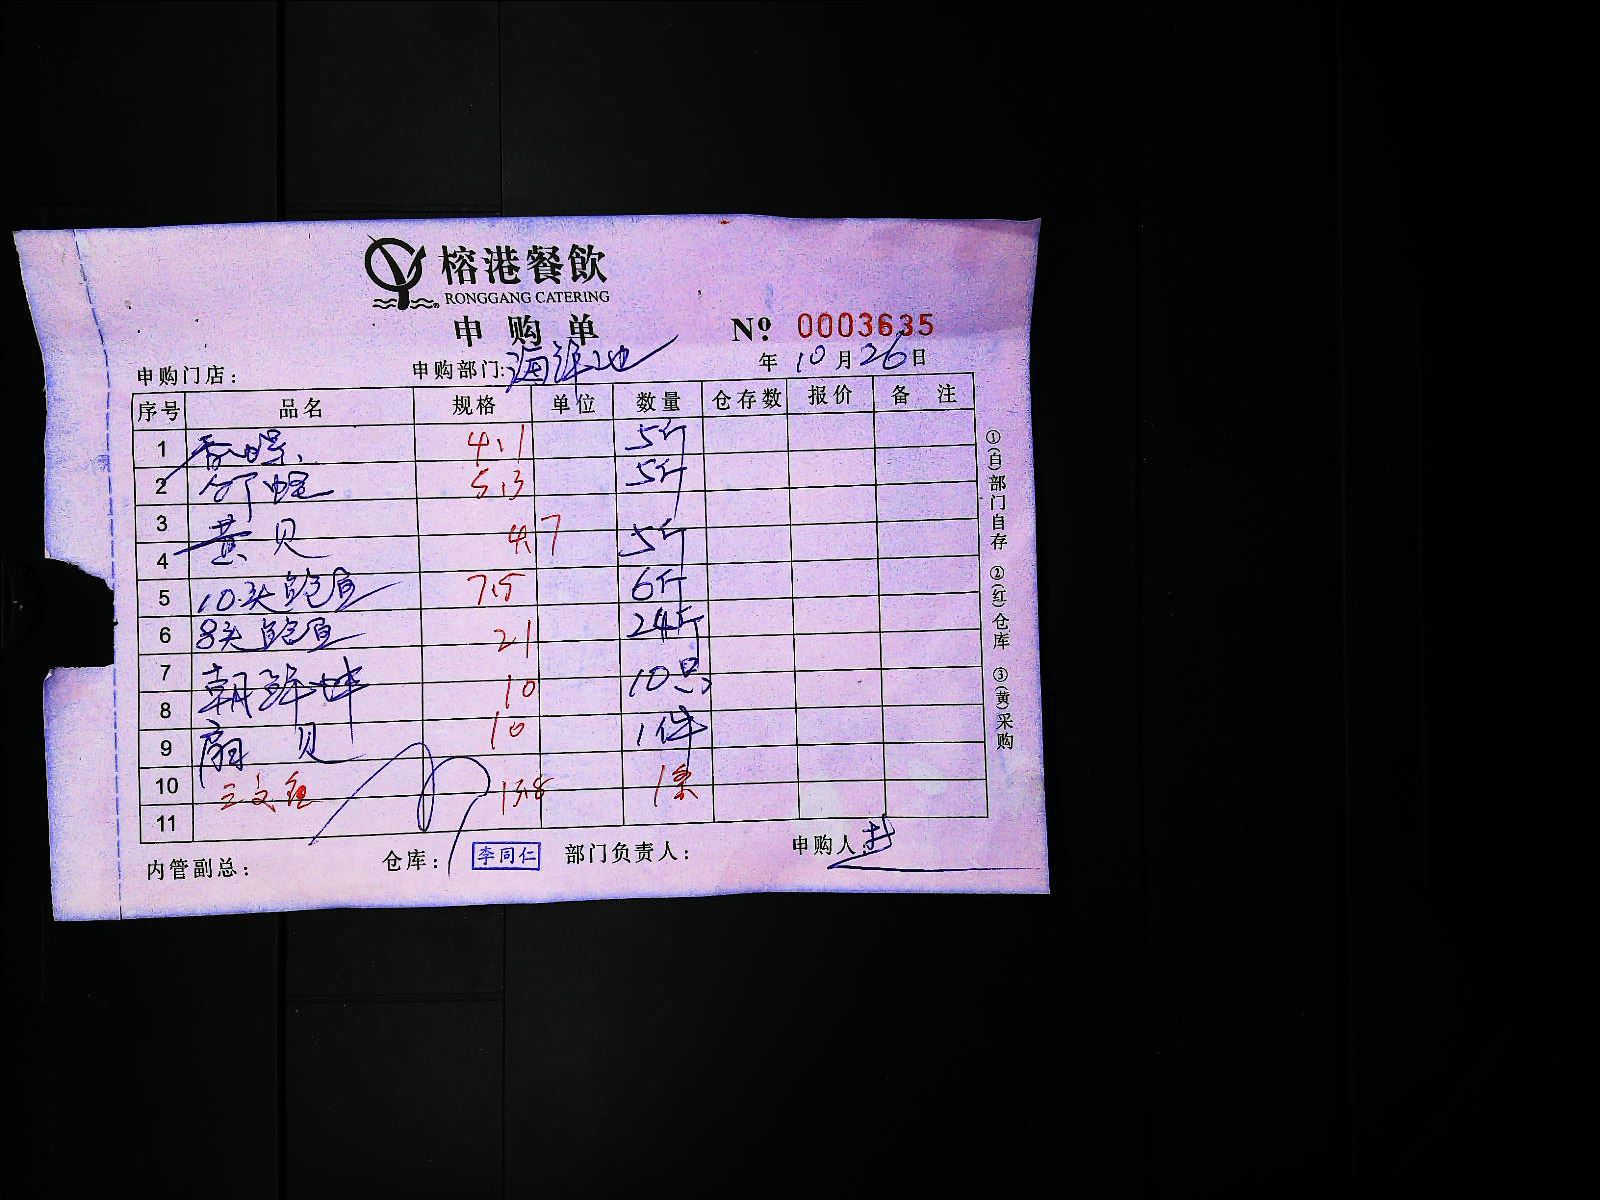 榕港餐飲
RONGGANG CATERING
申购单
№ 0003635
申购门店： 申购部门：海鲜池 年 10 月 26 日
序号 品名 规格 单位 数量 仓存数 报价 备 注
1 香螺 4.1 5斤
2 竹蛏 5.3 5斤
3
4 黄贝 4.7 5斤
5 10头鲍鱼 7.5 6斤
6 8头鲍鱼 21 24斤
7
8 朝鲜蚌 10 10只
9 扇贝 10 1件
10 三文鱼 13.8 1条
11
内管副总： 仓库： 李同仁 部门负责人： 申购人：
①(白)部门自存 ②(红)仓库 ③(黄)采购